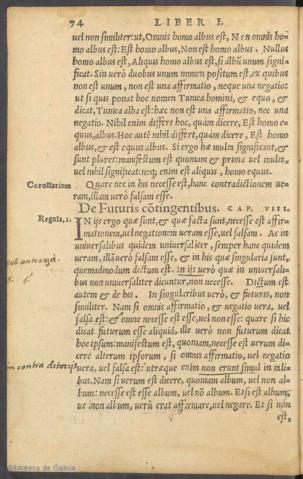 74 LIBER I.
uel non similiter: ut, Omnis homo albus est, Non omnis ho-
mo albus est: Est homo albus, Non est homo albus. Nullus
homo albus est, Aliquis homo albus est, si albū unum signi-
ficat. Sin uerò duobus unum nomen positum est, ex quibus
non est unum, non est una affirmatio, neque una negatio:
ut si quis ponat hoc nomen Tunica homini, & equo, &
dicat, Tunica alba est: hæc non est una affirmatio, nec una
negatio. Nihil enim differt hoc, quàm dicere, Est homo e-
quus, albus. Hoc autē nihil differt, quàm dicere, Est homo
albus, & est equus albus. Si ergo hæ multa significant, &
sunt plures: manifestum est quoniam & prima uel multa,
uel nihil significat: neq; enim est aliquis, homo equus.
Corollarium Quare nec in his necesse est, hanc contradictionem ue-
ram, illam uerò falsam esse.
De Futuris cōtingentibus. CAP. VIII.
Regula, 1. IN ijs ergo quæ sunt, & quæ facta sunt, necesse est affir-
mationem, uel negationem ueram esse, uel falsam. Ac in
uniuersalibus quidem uniuersaliter, semper hanc quidem
ueram, illā uerò falsam esse, & in his quæ singularia sunt,
quemadmodum dictum est. In ijs uerò quæ in uniuersali-
bus non uniuersaliter dicuntur, non necesse. Dictum est
autem & de his. In singularibus uerò, & futuris, non
similiter. Nam si omnis affirmatio, & negatio uera, uel
falsa est: & omne necesse est esse, uel non esse: quare si hic
dicat futurum esse aliquid, ille uerò non futurum dicat
hoc ipsum: manifestum est, quoniam, necesse est uerum di-
cere alterum ipsorum, si omnis affirmatio, uel negatio
uera, uel falsa est: utræque enim non erunt simul in tali-
bus. Nam si uerum est dicere, quoniam album, uel non al-
bum: necesse est esse album, uel nō album. Et si est album,
uel non album, uerū erat affirmare, uel negare. Et si non
est,
Biblioteca de Galicia